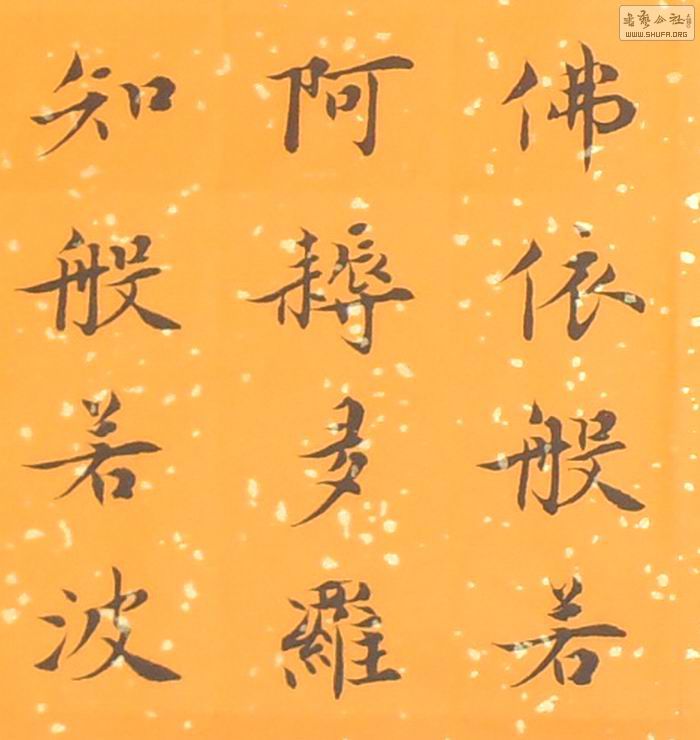 佛依般若
阿耨多羅
知般若波
書藝公社
WWW.SHUFA.ORG